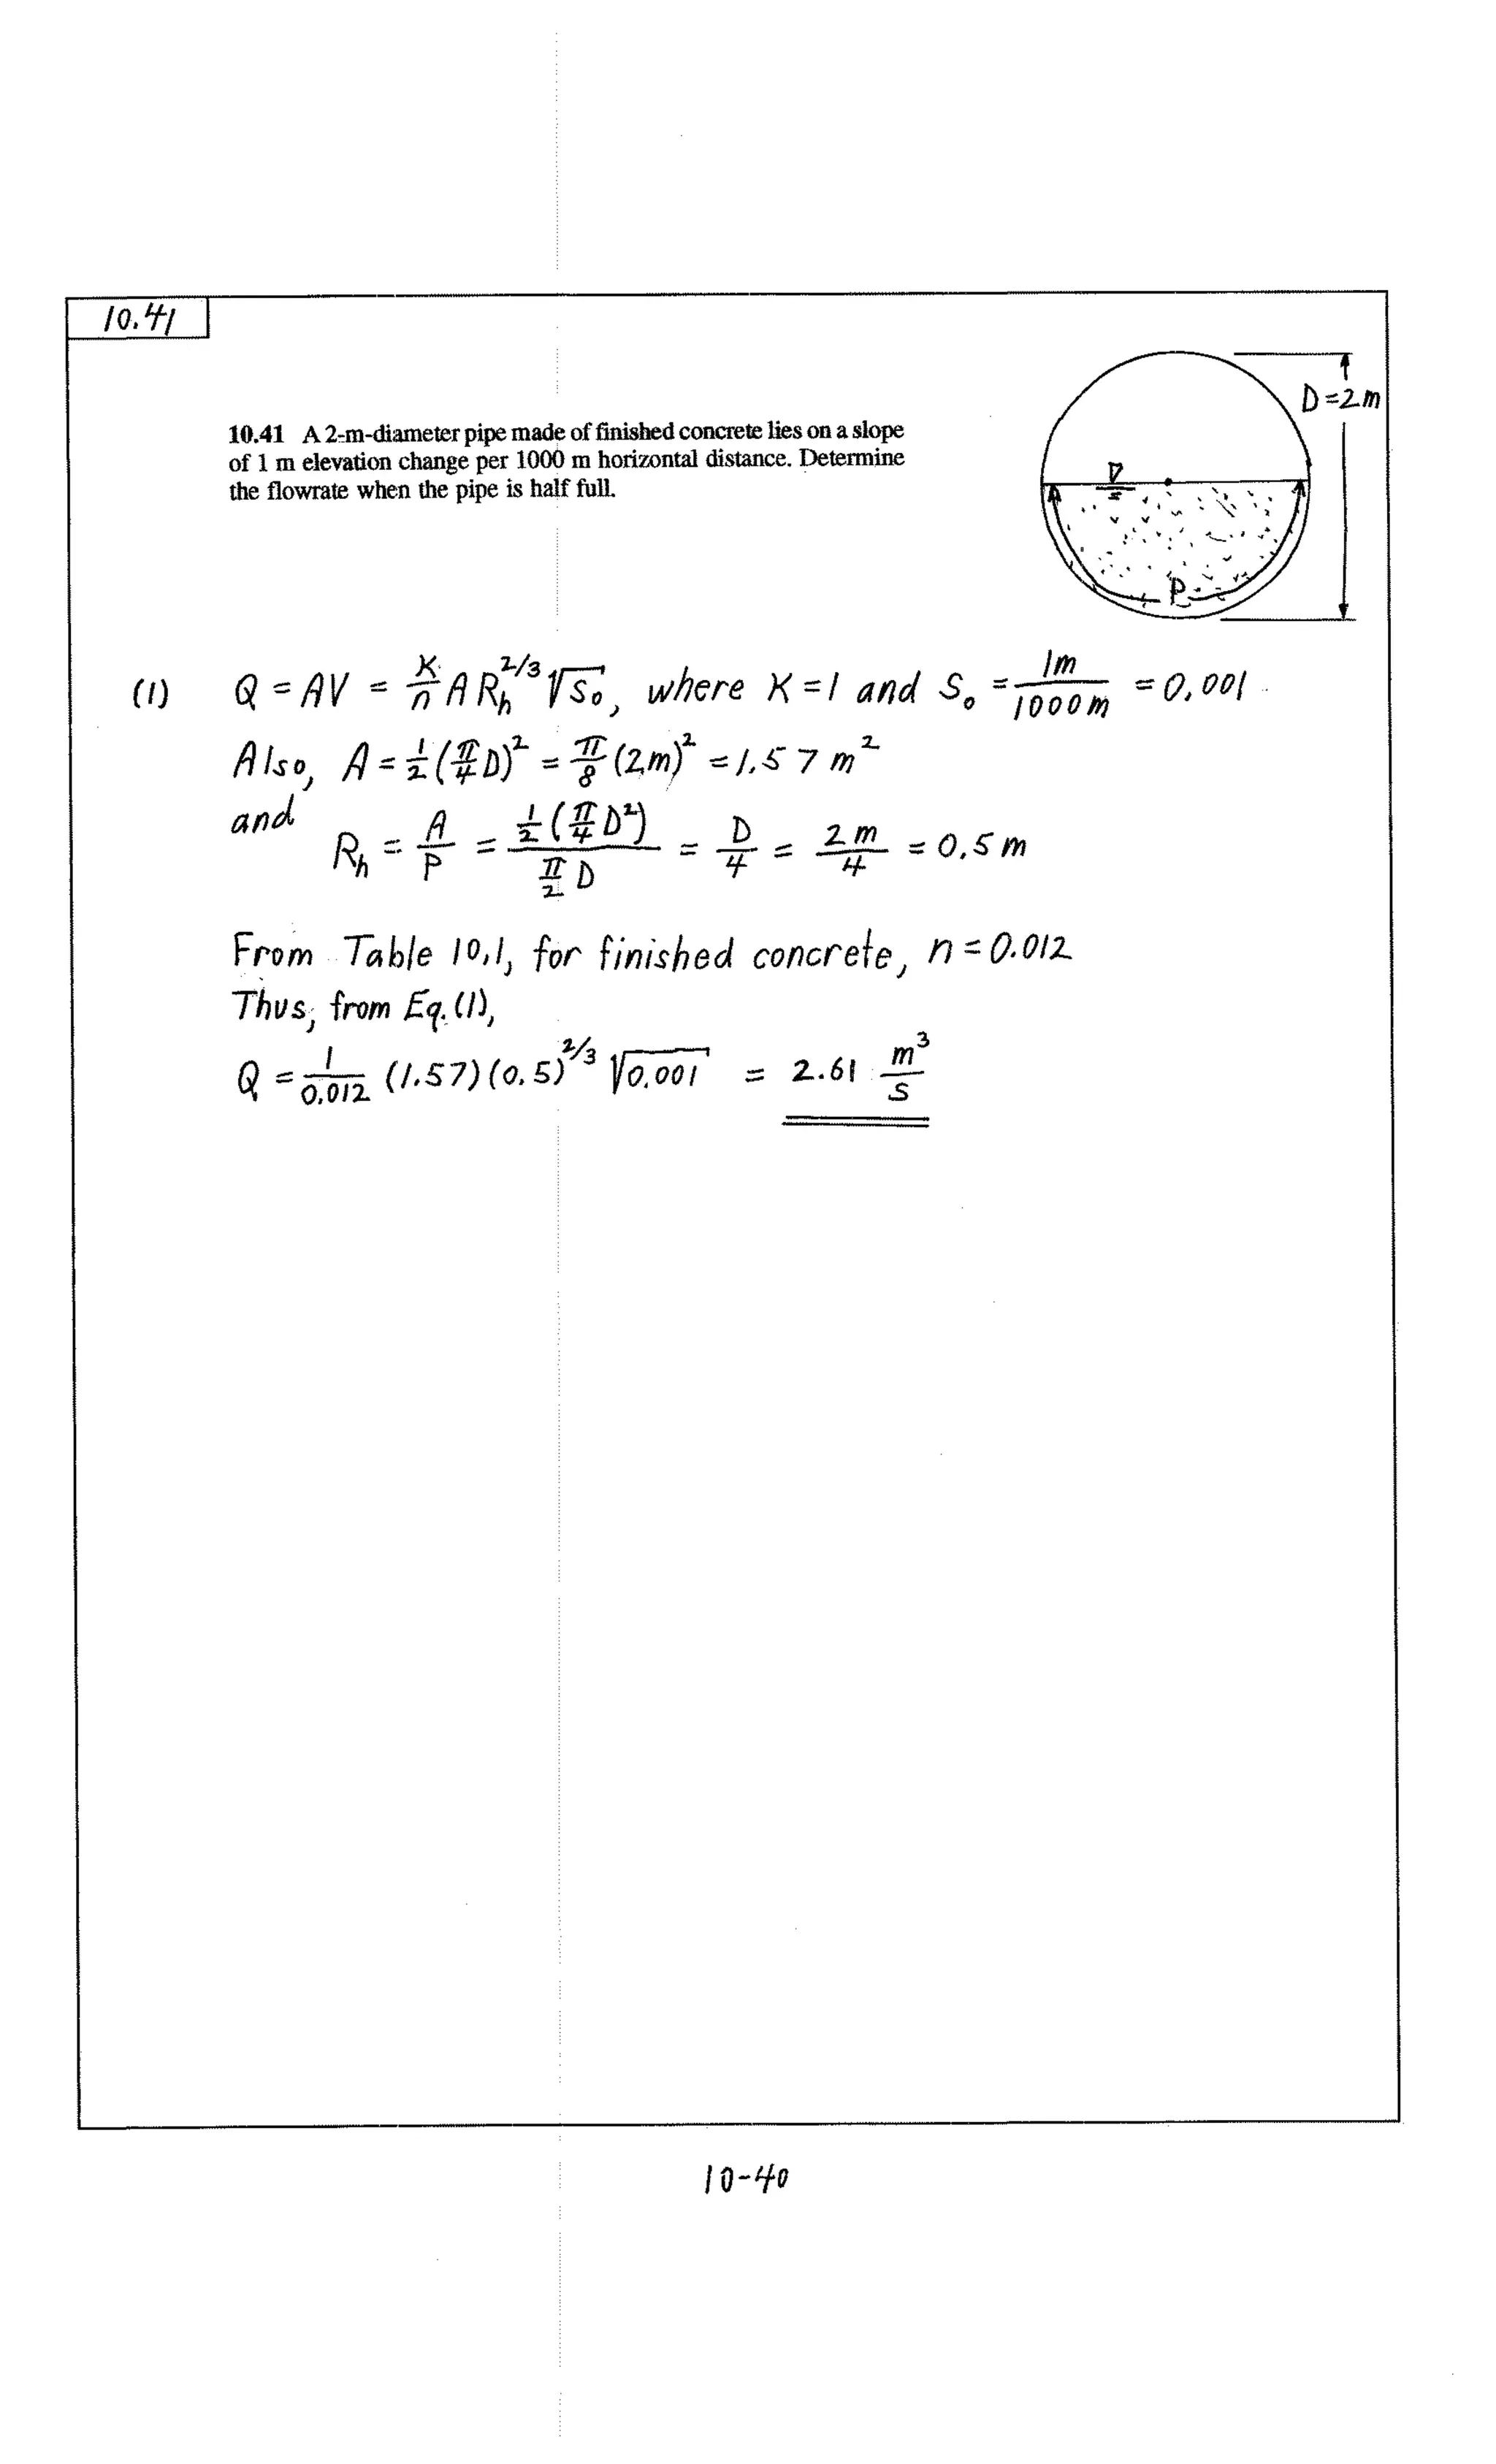 10.41
D=2m
10.41 A 2-m-diameter pipe made of finished concrete lies on a slope
of 1 m elevation change per 1000 m horizontal distance. Determine
the flowrate when the pipe is half full.
P
(1) Q = AV = K/n A R_h^2/3 √S_o, where K=1 and S_o = 1m/1000m = 0.001
Also, A = 1/2 (π/4 D)^2 = π/8 (2m)^2 = 1.57 m^2
and
R_h = A/P = 1/2 (π/4 D^2) / π/2 D = D/4 = 2m/4 = 0.5 m
From Table 10.1, for finished concrete, n = 0.012
Thus, from Eq. (1),
Q = 1/0.012 (1.57)(0.5)^2/3 √0.001 = 2.61 m^3/s
10-40